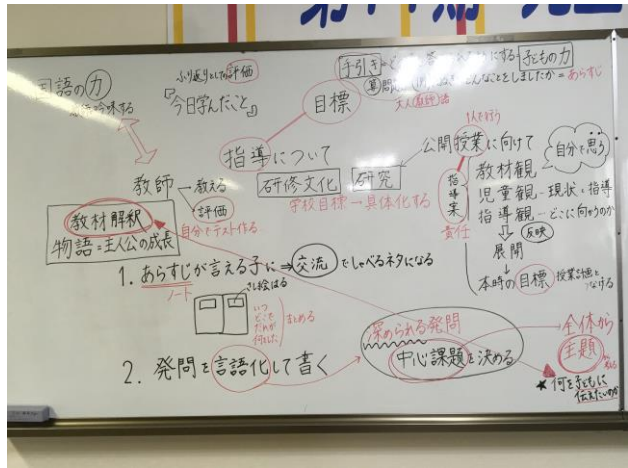 国語の力
ふり返りとしての評価
『今日学んだこと』
目標
手引き
子どもの力
なことをしましたか=あらすじ
指導について
研修文化
研究
学校目標→具体化する
公開授業に向けて
1人で行う
指導案
責任
教材観
自分で思う
児童観-現状と指導
指導観-どこに向かうのか
反映
展開
本時の目標
つなげる
教師→教える
評価
自分でテスト作る
教材解釈
物語=主人公の成長
1. あらすじが言える子に⇒交流でしゃべるネタになる
ノート
さし絵はる
いつ
どこで
だれが
何をした
まとめる
2. 発問を言語化して書く
深められる発問
中心課題を決める
全体から
主題
★何を子どもに
伝えたいのか